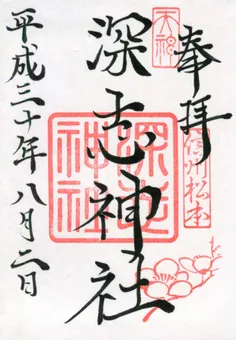 奉拝
信州松本
天神
深志神社
深志神社
平成三十年八月二日